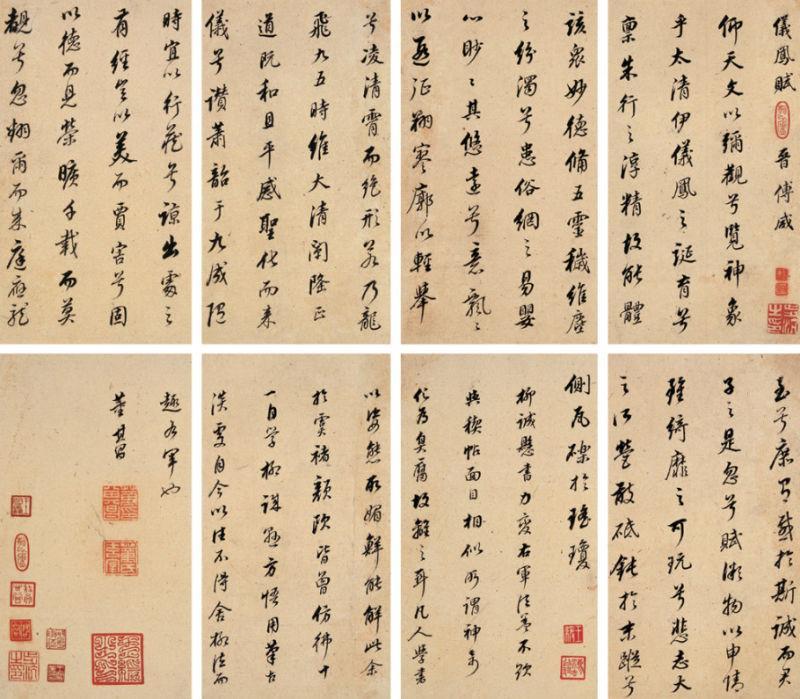 儀鳳賦 晉傅咸
仰天文以彌觀兮覽神象
乎太清伊儀鳳之誕育兮
稟朱行之淳精故能體
該衆妙德備五靈穢維塵
之紛濁兮患俗網之易嬰
心眇〻其悠遠兮意飄〻
以遐征翔寥廓以輕舉
兮凌清霄而絶形若乃龍
飛九五時維大清闡隆正
道既和且平感聖化而來
儀兮讚蕭韶于九成隨
時宜以行藏兮諒出處之
有經豈以美而賈害兮固
以德而見榮曠千載而莫
覩兮忽翔爾而來庭應龍
至兮庶有感於斯誠而君
子之是忽兮賦微物以申情
雖綺靡之可玩兮悲志大
之所營敢砥鈍於末蹤兮
側瓦礫於瑤瓊
柳誠懸書力變右軍法蓋不欲
與禊帖面目相似所謂神奇
化為臭腐故離之耳凡人學書
以姿態取媚鮮能解此余
於虞褚顏歐皆曾仿彿十
一自學柳誠懸方悟用筆古
淡處自今以往不得舍柳法而
趨右軍也
董其昌